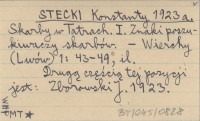 STECKI Konstanty 1923a.
Skarby w Tatrach. I. Znaki poszu-
kiwaczy skarbów. - Wierchy
(Lwów) 1: 43-49, il.
Drugą częścią tej pozycji
jest: Zborowski J. 1923.
TMT
BT/045/0828